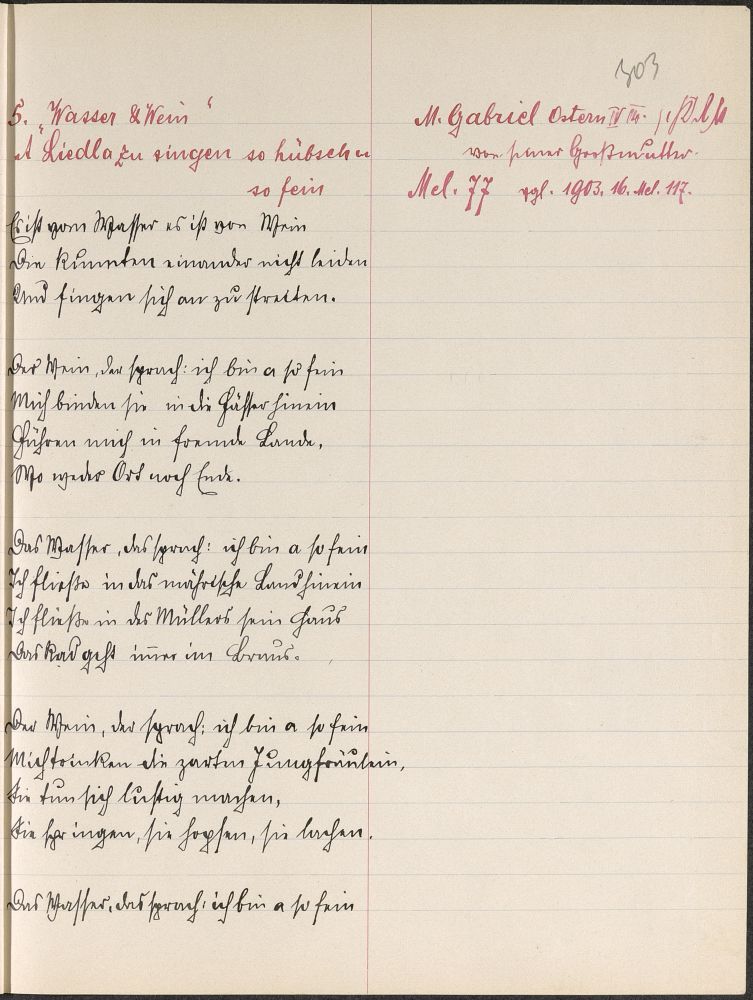 303
5. "Wasser & Wein"
A Liedla zu singen so hübsch u
so fein
Es ist vom Wasser es ist von Wein
Die kunnten einander nicht leiden
Und fingen sich an zu streiten.
Der Wein, der sprach: ich bin a so fein
Mich binden sie in die Fässer hinein
Führen mich in fremde Lande,
Wo weder Ort noch Ende.
Das Wasser, das sprach: ich bin a so fein
Ich fließe in das mährische Land hinein
Ich fließe in des Müllers sein Haus
Das Rad geht im̅er im Braus.
Der Wein, der sprach: ich bin a so fein
Mich trinken die zarten Jungfräulein,
Sie tun sich lustig machen,
Sie springen, sie hopsen, sie lachen.
Das Wasser, das sprach: ich bin a so fein
M. Gabriel Ostern IV
von seiner Großmutter.
Mel. 77 vgl. 1903. 16. Mel. 117.